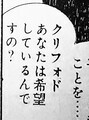 ことを…
クリフォド
あなたは希望
しているんで
すの？